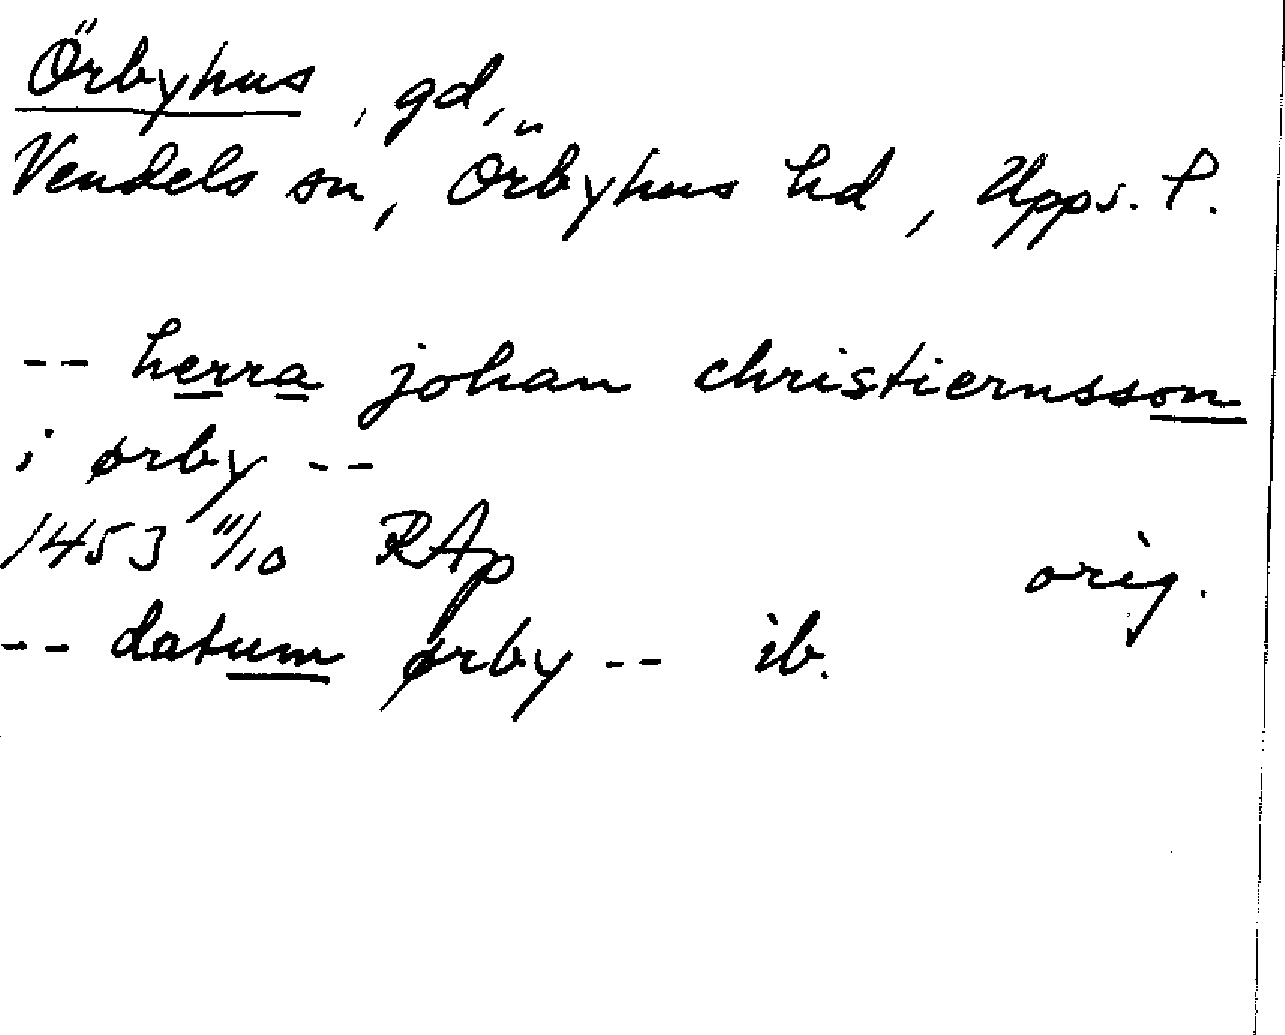 Örbyhus, gd,
Vendels sn, Örbyhus hd, Upps. l.
-- herra johan christiernsson
i ørby --
1453 11/10 RAp orig.
-- datum ørby -- ib.